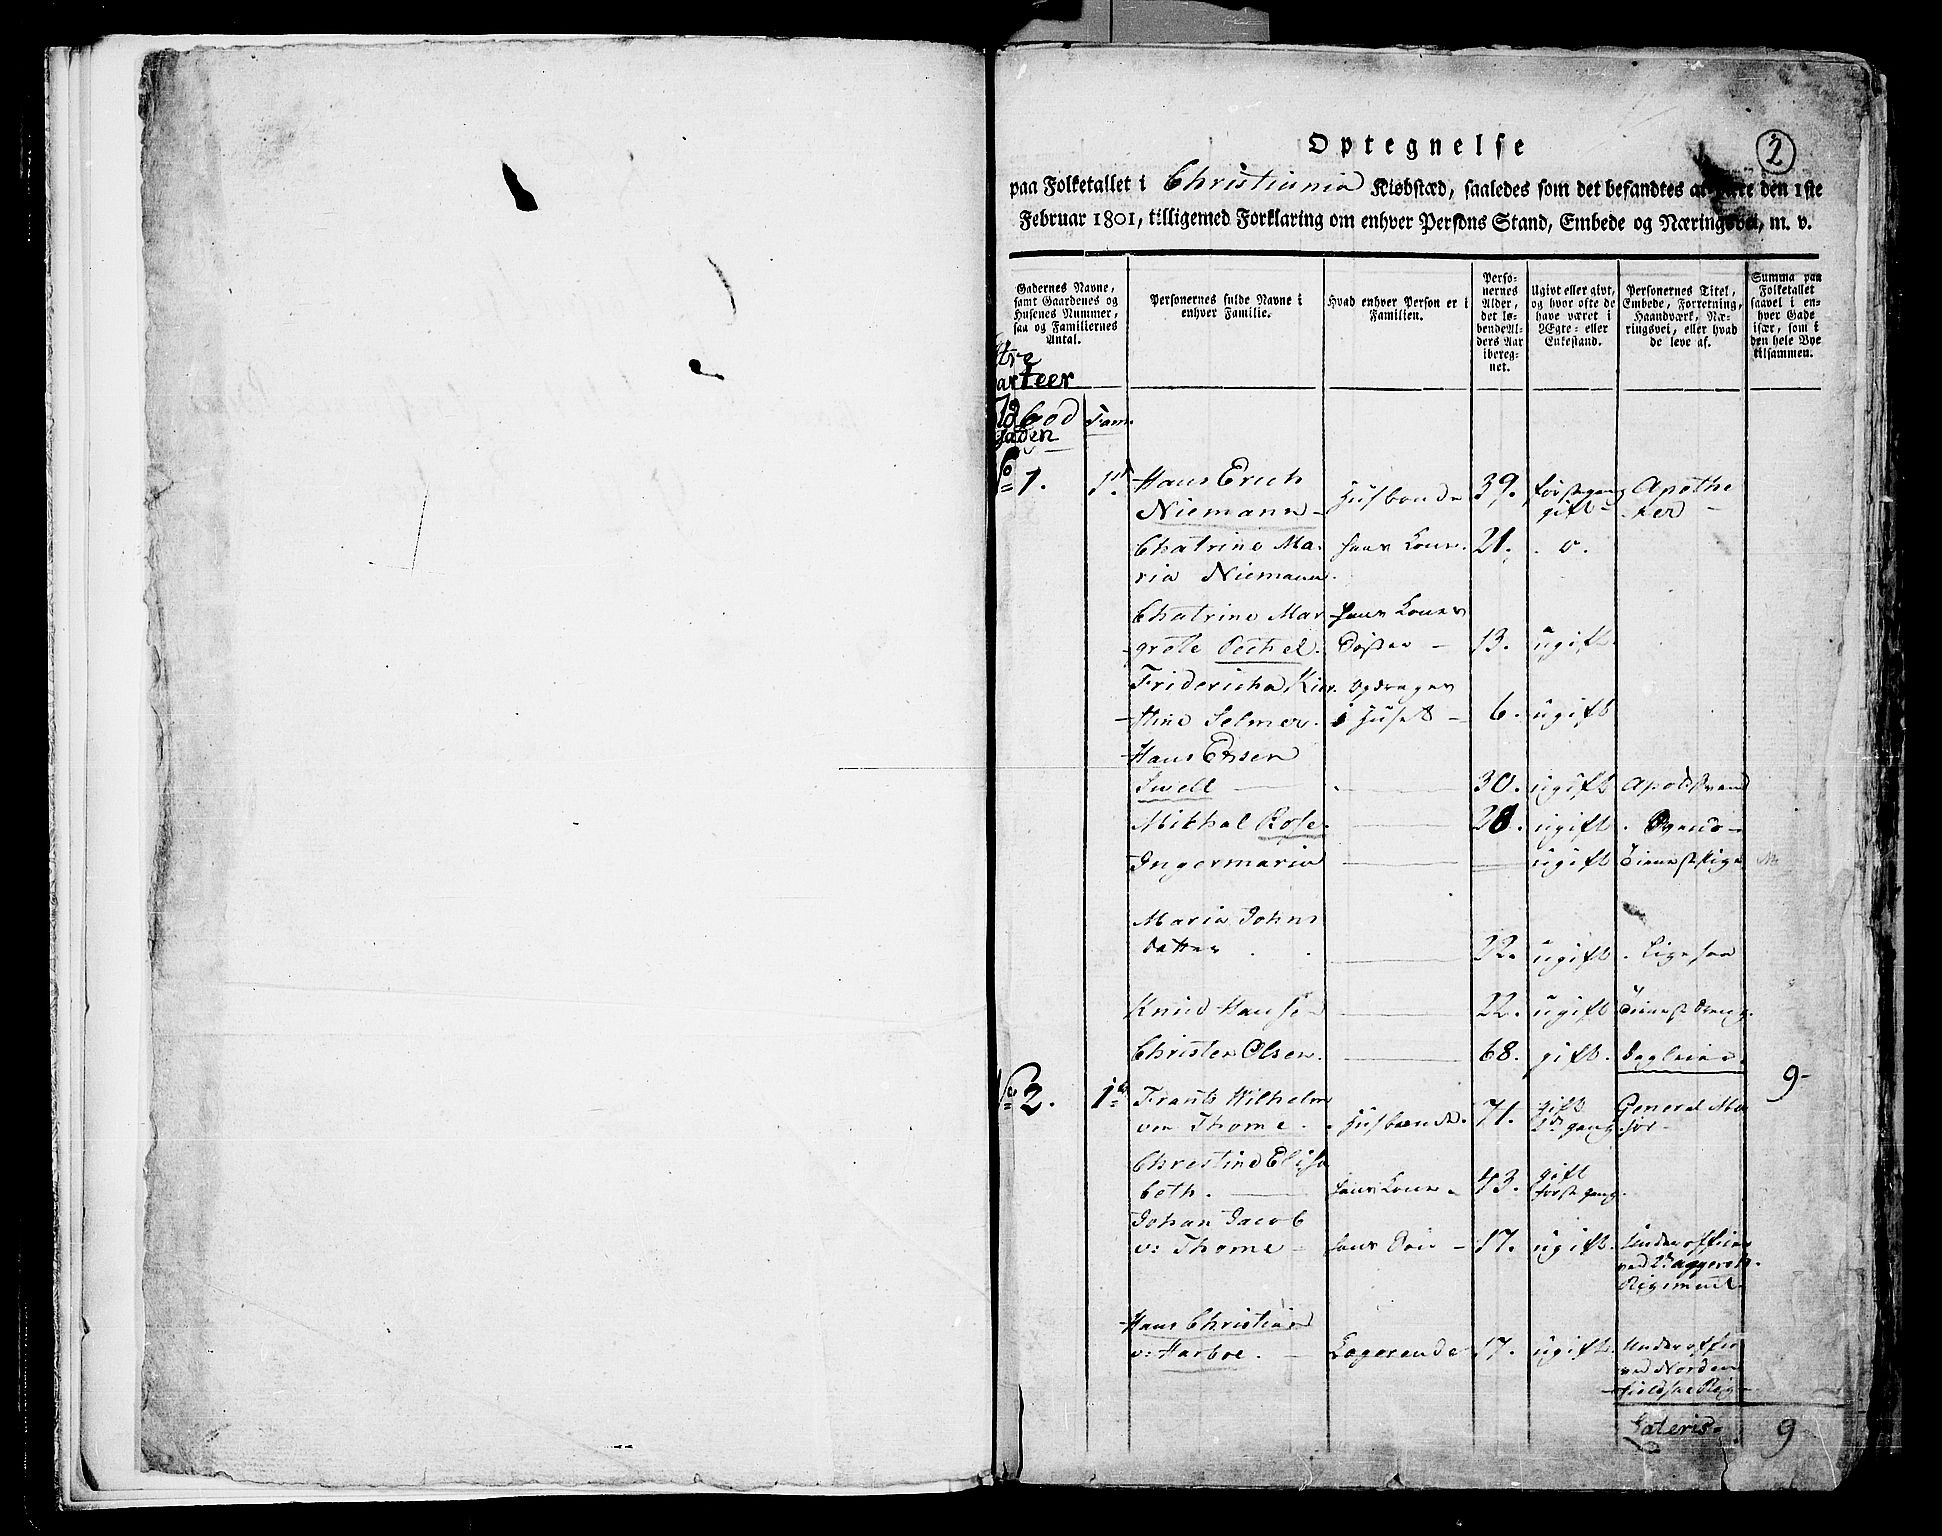 Optegnelse
2
paa Folketallet i Christiania Kiøbstæd, saaledes som det befandtes at være den 1ste
Februar 1801, tilligemed Forklaring om enhver Persons Stand, Embede og Næringsvei, m. v.
Gadernes Navne, samt Gaardenes og Husenes Nummer, saa og Familiernes Antal.
Personernes fulde Navne i enhver Familie.
Hvad enhver Person er i Familien.
Personernes Alder, det løbende Alders Aar iberegnet.
Ugivt eller givt, og hvor ofte de have været i Ægte- eller Enkestand.
Personernes Titel, Embede, Forretning, Haandværk, Næringsvei, eller hvad de leve af.
Summa paa Folketallet saavel i enhver Gade især, som i den hele Bye tilsammen.
tre
arteer
bod Fam:
gaden
No 1. 1st Hans Erich Husbonde 39. første gang Apothe
Niemann gift ker
Chatrine Ma- hans Kone 21. o.
ria Niemann
Chatrine Mar hans Kones
grete Pechel. Søster 13. ugift
Fridericha Kir Opdrages
stine Selmer. i Huset 6. ugift
Hans Ensen
Swell 30. ugift Apoth Svend
Mikhal Rose 28. ugift Svend
Ingermaria ugift Tienestepige
Maria Johns
datter 22. ugift Ligesaa
Knud Hanse 22. ugift Tieneste Dreng
Christen Olsen 68. gift. Dagleier
9
No 2. 1st Frants Wilhelm gift General Ma
von Thome. Husbonde. 71. 2de gang jor
Christine Elisa gift
beth. hans Kone 43. første gang
Johan Jacob
v: Thome hans Søn 17. ugift. Underofficer
ved 2det Aggersh.
Regiment
Hans Christian
v: Harboe. Logerende 17. ugift. Underoffic
ved Norden
fieldske Reg
Lateris 9